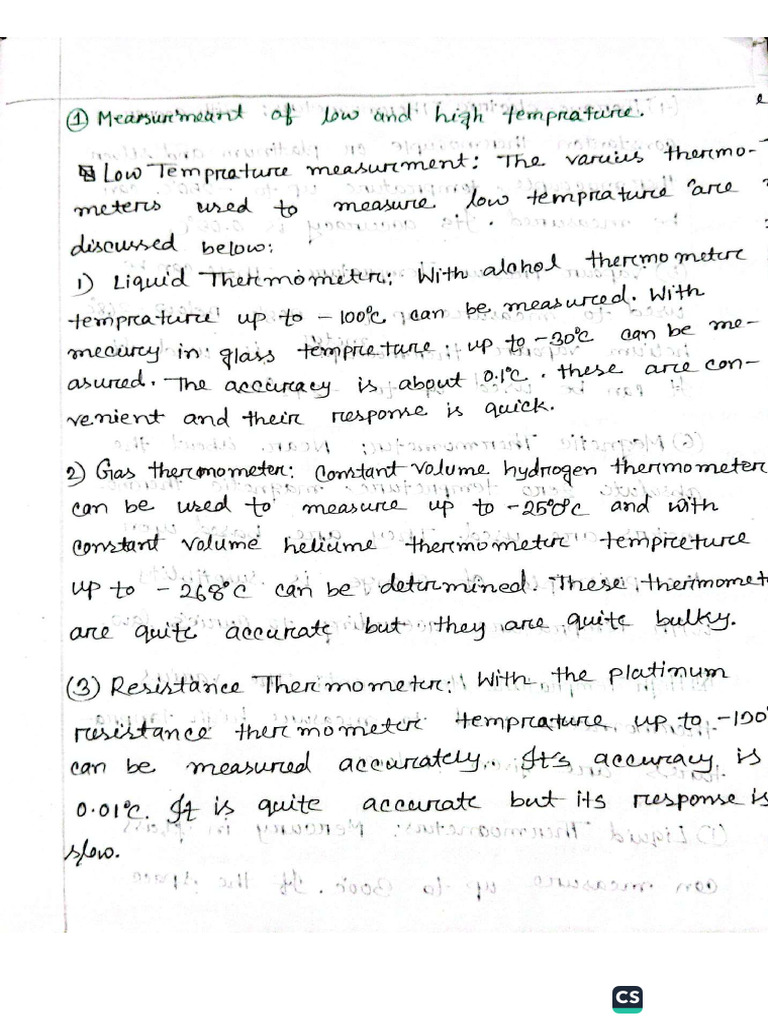 ① Mearsurmeant of low and high temprature.
Low Temprature measurment: The variuis thermo-
meters used to measure low temprature are
discussed below:
1) Liquid Thermometer: With alohol thermometer
temprature up to -100°c, can be measured. With
mecurcy in glass tempreture, up to -30°c can be me-
asured. The accuracy is about 0.1°c. these are con-
venient and their response is quick.
2) Gas thermometer: Constant volume hydrogen thermometer
can be used to measure up to -250°c and with
constant volume heliume thermometer tempreture
up to -268°C can be determined. These thermomet
are quite accurate but they are quite bulky.
(3) Resistance Thermometer: With the platinum
resistance thermometer temprature up to
can be measured accurately. It's accuracy is
0.01°c. It is quite accurate but its response is
slow.
CS